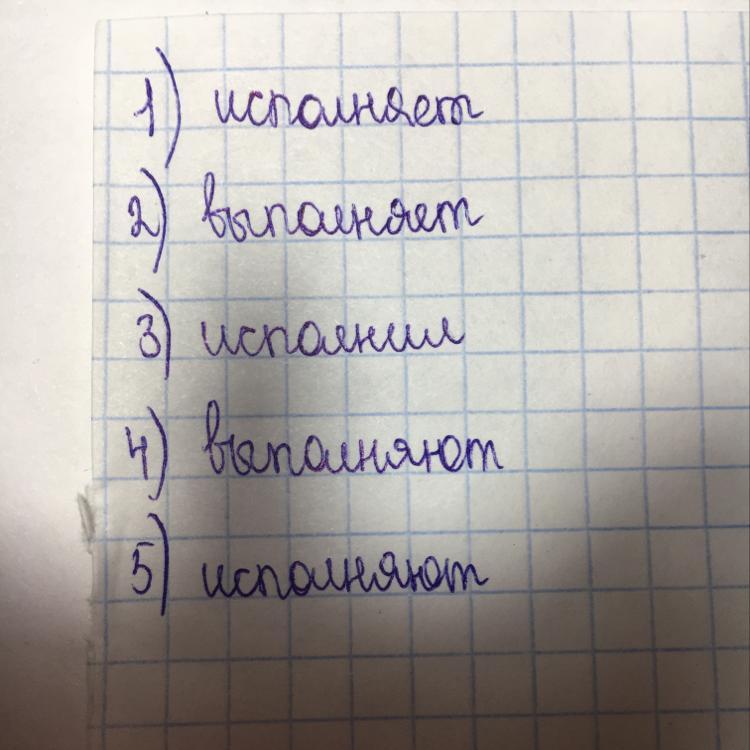 1) исполняет
2) выполняет
3) исполнил
4) выполняют
5) исполняют